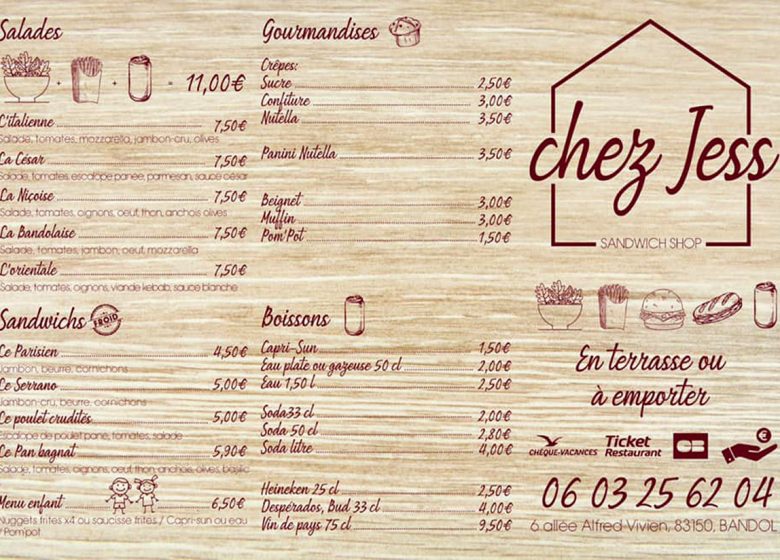 Salades
+ + = 11,00€
L'italienne 7,50€
Salade, tomates, mozzarella, jambon-cru, olives
La César 7,50€
Salade, tomates, escalope panée, parmesan, sauce césar
La Niçoise 7,50€
Salade, tomates, oignons, oeuf, thon, anchois olives
La Bandolaise 7,50€
Salade, tomates, jambon, oeuf, mozzarella
L'orientale 7,50€
Salade, tomates, oignons, viande kebab, sauce blanche
Sandwichs
FROID
Le Parisien 4,50€
Jambon, beurre, cornichons
Le Serrano 5,00€
Jambon-cru, beurre, cornichons
Le poulet crudités 5,00€
Escalope de poulet pané, tomates, salade
Le Pan bagnat 5,90€
Salade, tomates, oignons, oeuf, thon, anchois, olives, basilic
Menu enfant 6,50€
Nuggets frites x4 ou saucisse frites / Capri-sun ou eau
/ Pom'pot
Gourmandises
Crêpes:
Sucre 2,50€
Confiture 3,00€
Nutella 3,50€
Panini Nutella 3,50€
Beignet 3,00€
Muffin 3,00€
Pom'Pot 1,50€
Boissons
Capri-Sun 1,50€
Eau plate ou gazeuse 50 cl 2,00€
Eau 1,50 l 2,50€
Soda33 cl 2,00€
Soda 50 cl 2,80€
Soda litre 4,00€
Heineken 25 cl 2,50€
Despérados, Bud 33 cl 4,00€
Vin de pays 75 cl 9,50€
chez Jess
SANDWICH SHOP
En terrasse ou
à emporter
CHÈQUE-VACANCES
Ticket
Restaurant
CB
€
06 03 25 62 04
6 allée Alfred Vivien, 83150, BANDOL